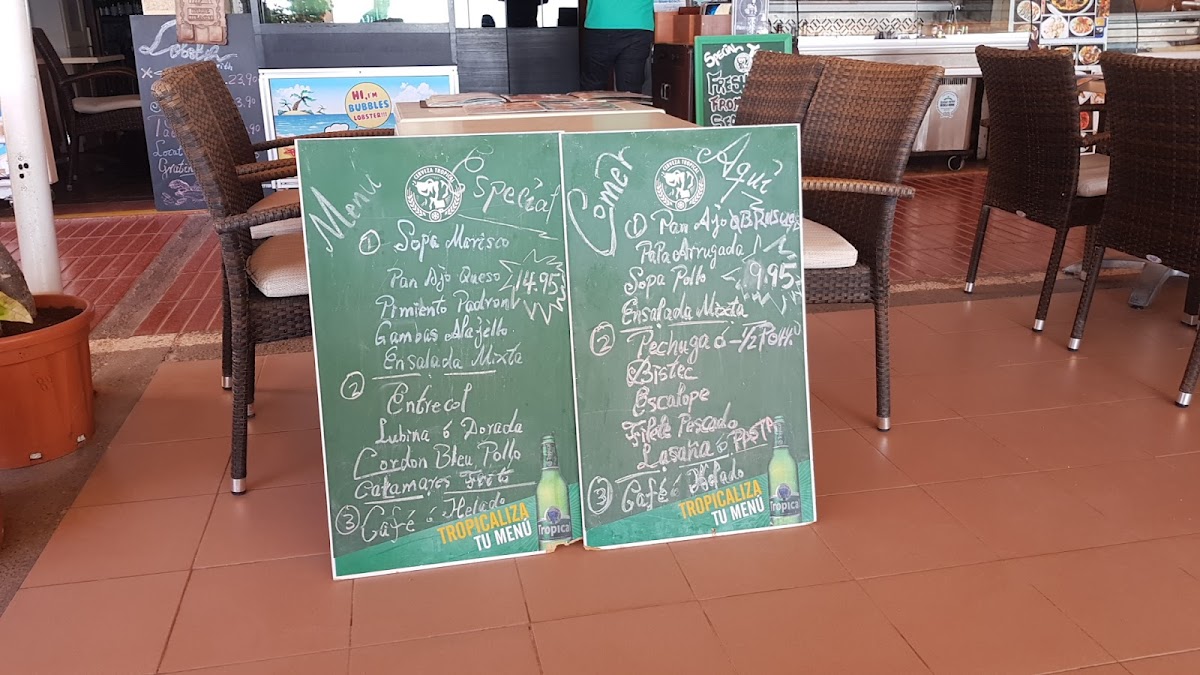 Menú Especial
CERVEZA TROPICAL
① Sopa Marisco
Pan Ajo Queso
14.95
Pimiento Padron
Gambas Alajello
Ensalada Mixta
② Entrecol
Lubina ó Dorada
Cordon Bleu Pollo
Calamares Frito
③ Café ó Helado
TROPICALIZA
TU MENÚ
Tropical
Comer Aquí
CERVEZA TROPICAL
① Pan Ajó ó
Papa Arrugada
Sopa Pollo
9.95
Ensalada Mixta
② Pechuga ó -1/2 Pollo
Bistec
Escalope
Filete Pescado
Lasaña ó PASTA
③ Café ó Helado
TROPICALIZA
TU MENÚ
Tropical
HI, I'M
BUBBLES
LOBSTER!!!
Special
FRESH
FROM
23,90